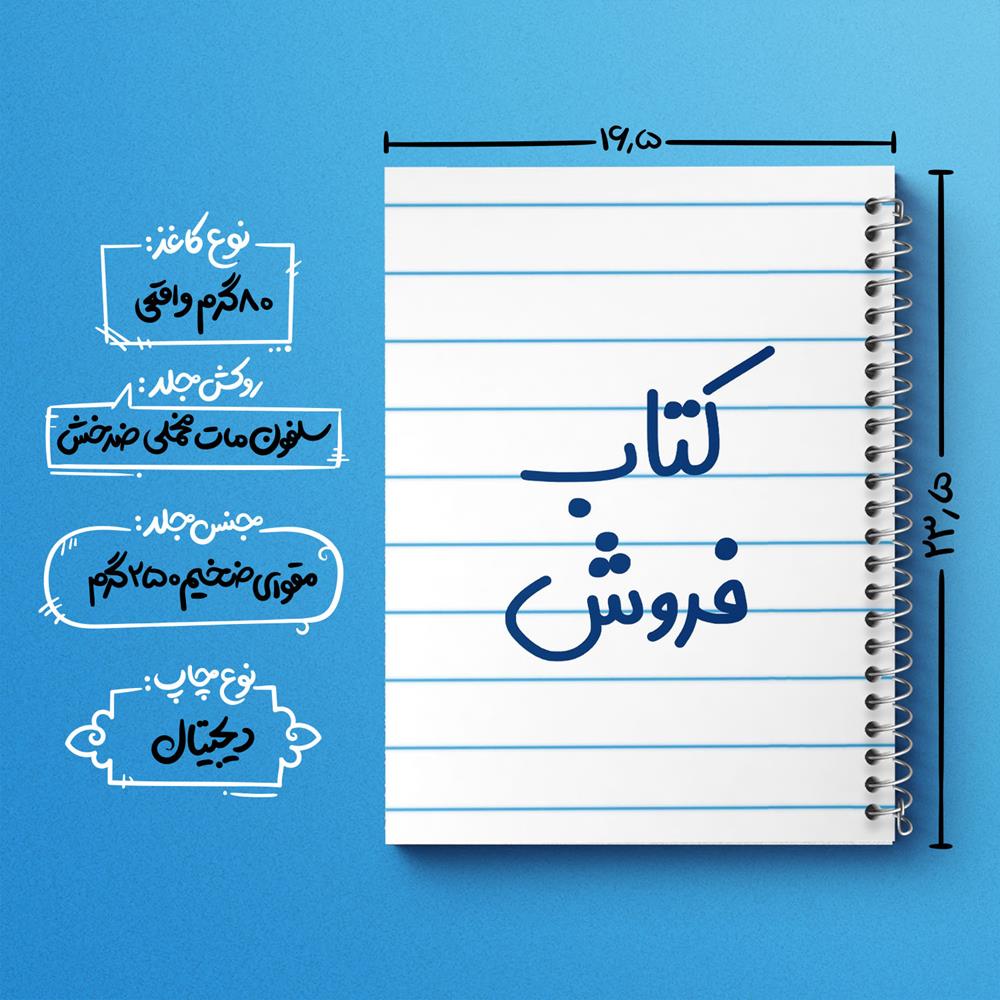 ۱۶٫۵
۲۳٫۵
نوع کاغذ:
۸۰گرم واقعی
روکش جلد:
سلفون مات مخملی ضدخش
جنس جلد:
مقوای ضخیم ۲۵۰گرم
نوع چاپ:
دیجیتال
کتاب
فروش